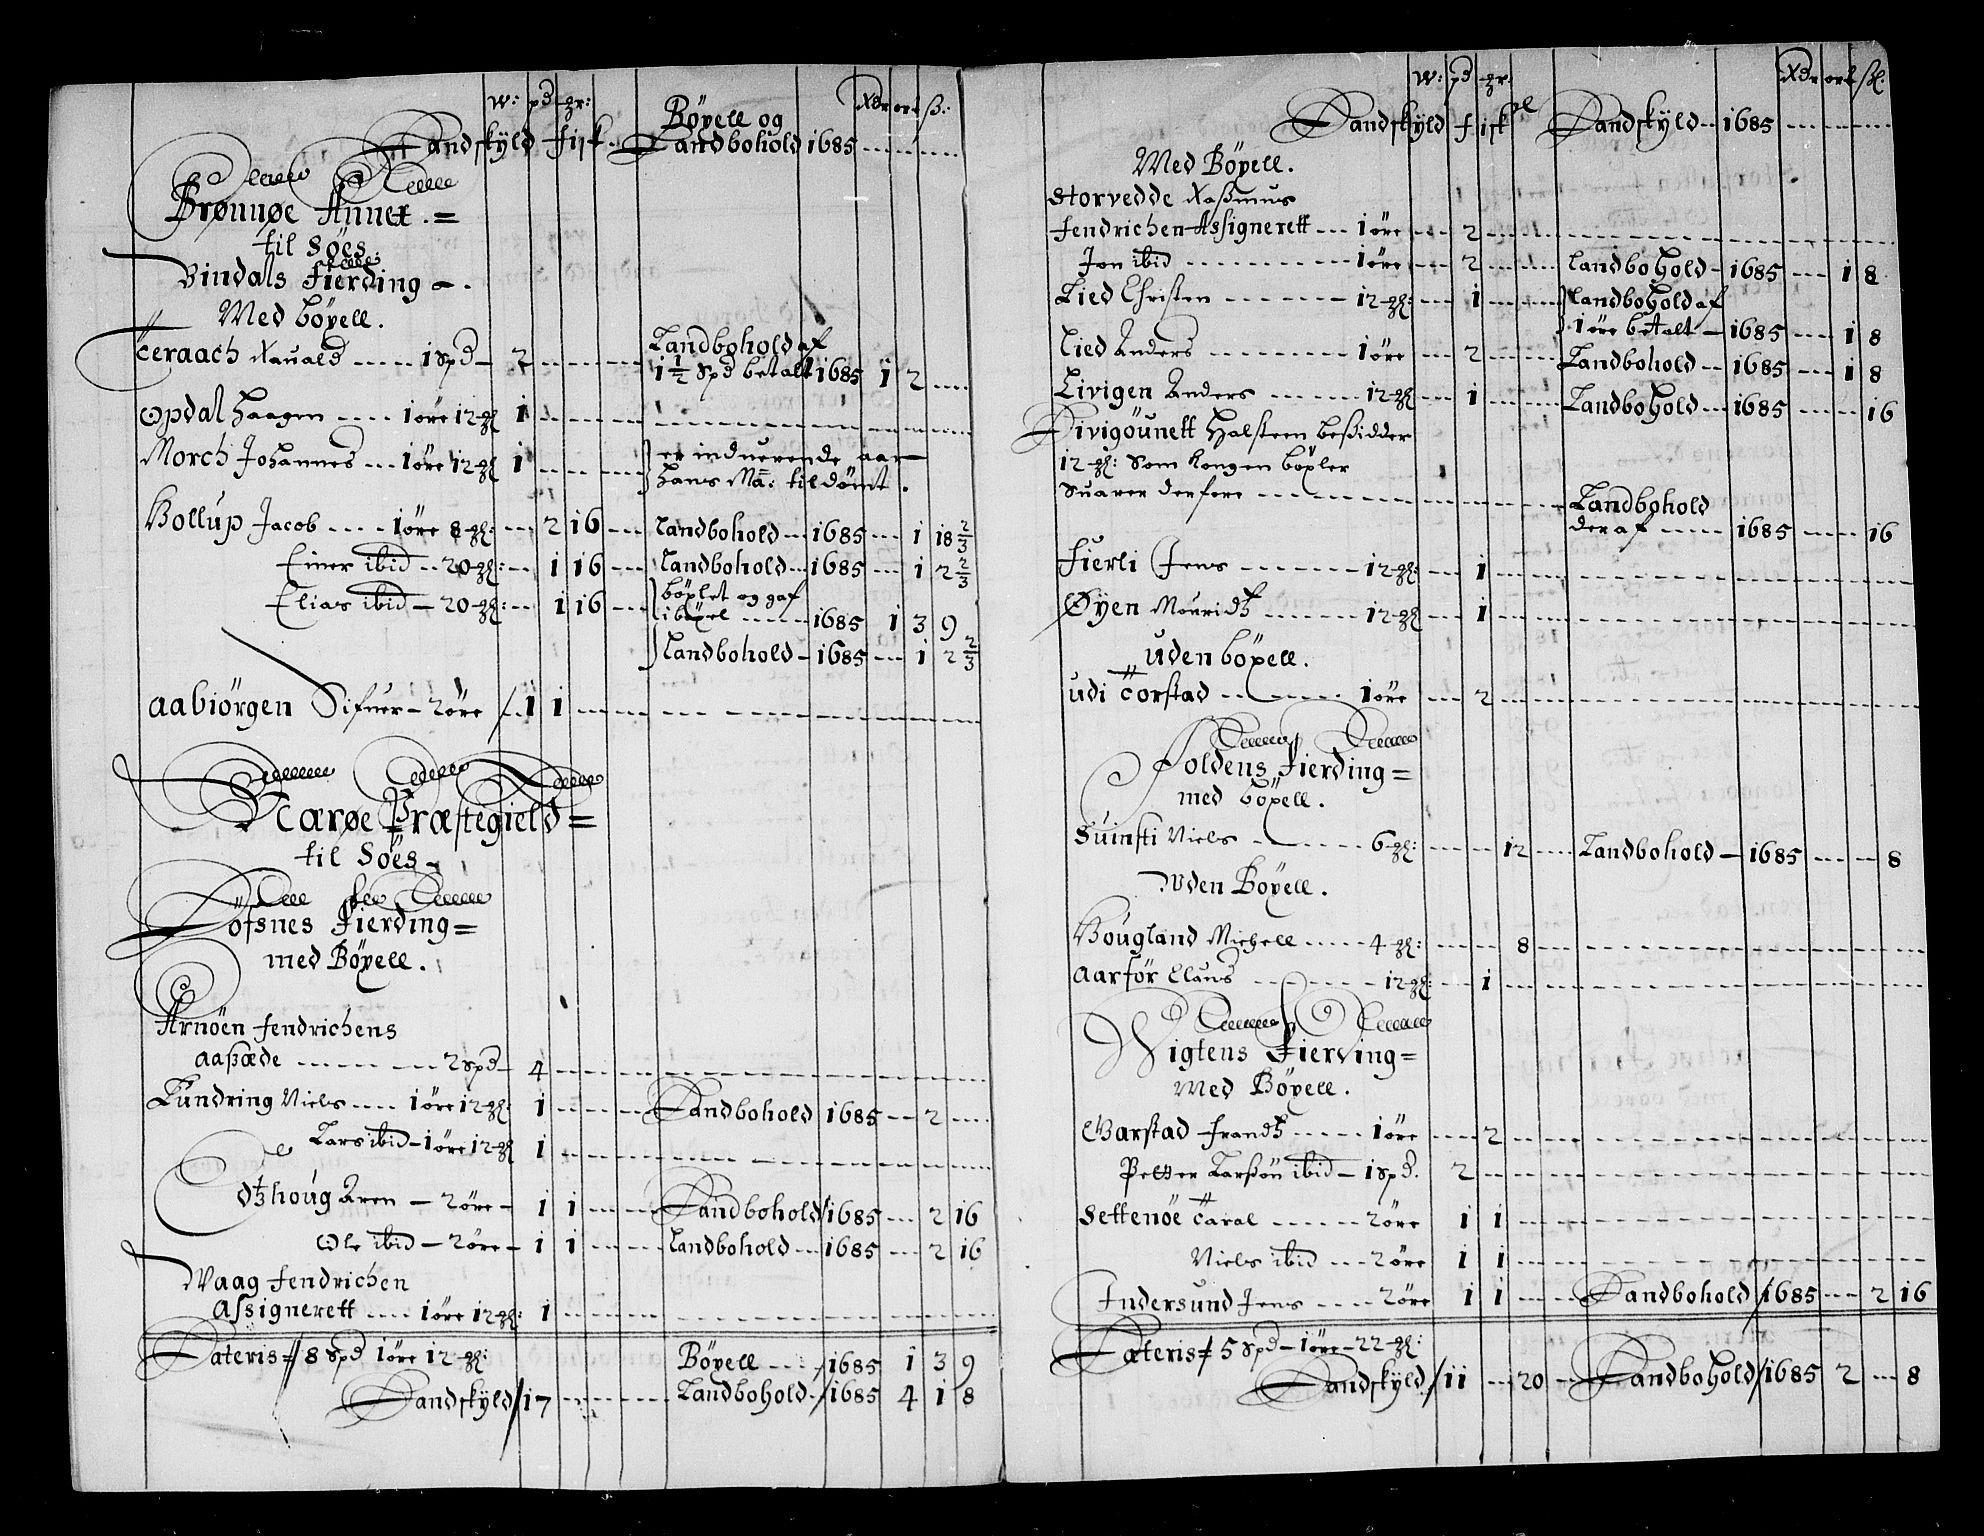 W: pd gr:
Landskyld fisk
Böxell og
Landbohold 1685
Xdr ort ß:
Brønnøe Annex. =
til Söes
Vindals Fierding -.
Med böxell.
Teraach Rauald ---- 1 spd - 2
Landbohold af
1 1/2 spd betalt 1685 1 2
Opdal Haagen ---- 1 öre 12 gl 1
Morch Johannes --- 1 öre 12 gl 1
er induerende aar
hans Ma: tildömt.
Bollup Jacob ---- 1 öre 8 gl: -- 2 16 -- Landbohold -- 1685 -- 1 18 2/3
Einer ibid -- 20 gl: -- 1 16 -- Landbohold -- 1685 -- 1 2 2/3
Elias ibid - 20 gl: -- 1 16 --
böxlet og gaf
i böxel ---- 1685 1 3 9
Landbohold - 1685 -- 1 2 2/3
aabiörgen Sifuer - 2 öre / 1 1
Nærøe Præstegield =
til Söes -
Töfsnes Fierding =
med Böxell.
Arnöen fendrichens
aaßæde ------ 2 spd - 4
Lundring Niels ---- 1 öre 12 gl: 1 ---- Landbohold 1685 -- 2
Lars ibid - 1 öre 12 gl 1
Odtzhoug Aren - 2 öre - 1 1 ---- Landbohold/1685 -- 2 16
Ole ibid - 2 öre - 1 1 ---- Landbohold -- 1685 -- 2 16
Waag fendrichen
Assignerett ---- 1 öre 12 gl: 1
Lateris =/ 8 spd 1 öre 12 gl:
Böxell ---- /1685 1 3 9
Landskyld/17 ---- Landbohold-/1685 4 1 8
W: pd gr:
Landskyld fisk
Landskyld -- 1685
Xdr ort ßl:
Med Böxell.
Storvedde Raßmus
fendrichen Assignerett --- 1 öre --- 2
Jon ibid ------ 1 öre --- 2 ---- Landbohold - 1685 --- 1 8
Lied Christen ------ 12 gl: --- 1
Landbohold af
1 öre betalt - 1685 --- 1 8
Lied Anders ------ 1 öre --- 2 ---- Landbohold -- 1685 --- 1 8
Livigen Anders ------ 12 gl --- 1 ---- Landbohold -- 1685 ---- 16
Divigöunett Halsteen beßidder
12 gl: som Kongen böxler
Suarer derfore
Landbohold
deraf ---- 1685 ---- 16
Fierli Jens ------ 12 gl: -- 1
Øyen Mouridtz ------ 12 gl -- 1
uden böxell.
udi Torstad ------ 1 öre --- 2
Foldens Fierding =
med böxell.
Suinsti Niels ------ 6 gl: ---- 12 --- Landbohold - 1685 ---- 8
Uden Böxell.
Hougland Michell ----- 4 gl: ---- 8
Aarför Claus ------ 12 gl: -- 1
Wigtens Fierding =
Med Böxell.
Garstad frandtz ----- 1 öre ---- 2
Petter Larßön ibid - 1 spd. 2
Settenöe Taral ----- 2 öre 1 1
Niels ibid --- 2 öre 1 1
Indersund Jens ---- 2 öre 1 1 ---- Landbohold/1685 --- 2 16
Lateris =/ 5 spd - 1 öre - 22 gl:
Landskyld/11 -- 20 -- Landbohold/1685 2 --- 8